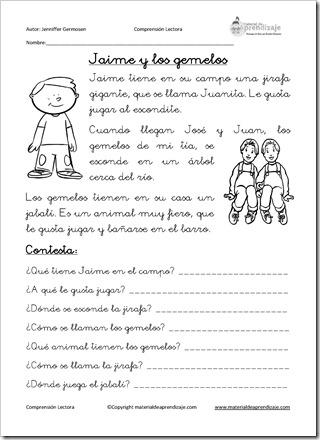 Autor: Jenniffer Germosen Comprensión Lectora
material de
aprendizaje
Nombre:
Jaime y los gemelos
Jaime tiene en su campo una jirafa
gigante, que se llama Juanita. Le gusta
jugar al escondite.
Cuando llegan José y Juan, los
gemelos de mi tía, se
esconde en un árbol
cerca del río.
Los gemelos tienen en su casa un
jabalí. Es un animal muy fiero, que
le gusta jugar y bañarse en el barro.
Contesta:
¿Qué tiene Jaime en el campo?
¿A qué le gusta jugar?
¿Dónde se esconde la jirafa?
¿Cómo se llaman los gemelos?
¿Qué animal tienen los gemelos?
¿Cómo se llama la jirafa?
¿Dónde juega el jabalí?
Comprensión Lectora ©Copyright materialdeaprendizaje.com www.materialdeaprendizaje.com